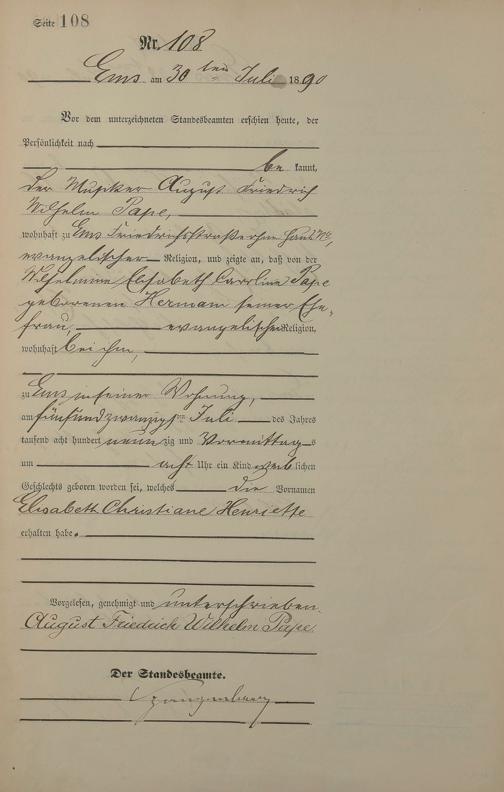 Seite 108
Nr. 108
Ems am 30ten Juli 1890
Vor dem unterzeichneten Standesbeamten erschien heute, der
Persönlichkeit nach
bekannt,
der Musiker August Friedrich
Wilhelm Pape,
wohnhaft zu Ems Friedrichstraße ohne Haus No,
evangelischer Religion, und zeigte an, daß von der
Wilhelmine Elisabeth Caroline Pape
geborenen Hermani seiner Ehe-
frau, evangelischer Religion,
wohnhaft bei ihm,
zu Ems in seiner Wohnung,
am fünfundzwanzigsten Juli des Jahres
tausend acht hundert neunzig und Vormittags
um acht Uhr ein Kind weiblichen
Geschlechts geboren worden sei, welches die Vornamen
Elisabeth Christiane Henriette
erhalten habe.
Vorgelesen, genehmigt und unterschrieben.
August Friedrich Wilhelm Pape.
Der Standesbeamte.